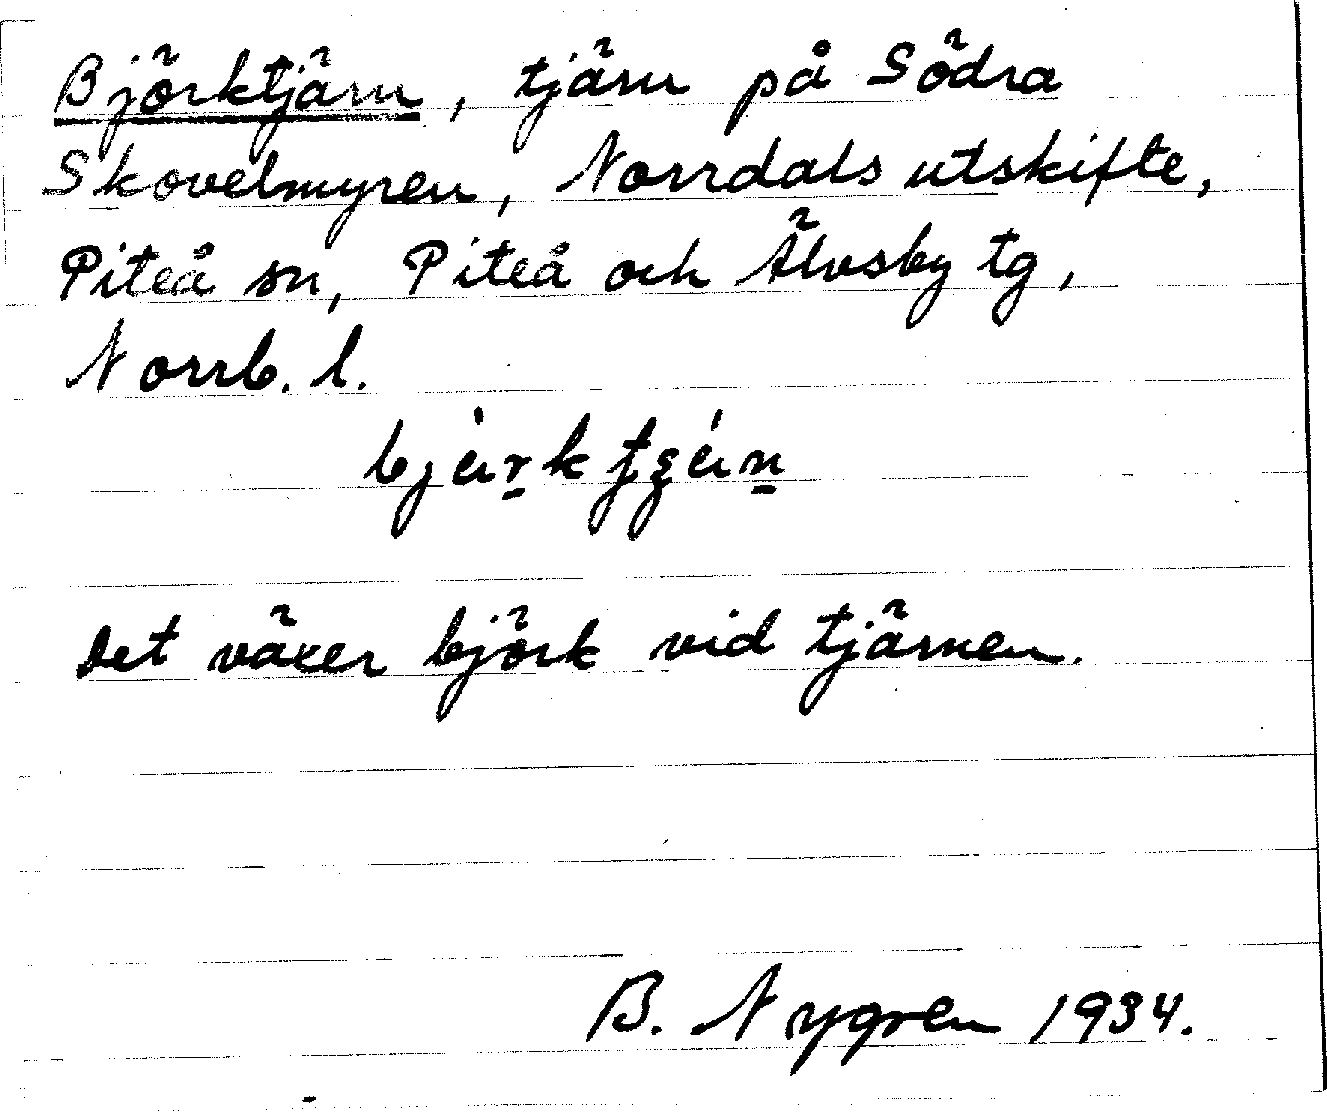 Björktjärn, tjärn på Södra
Skovelmyren, Norrdals utskifte,
Piteå sn, Piteå och Älvsby tg,
Norrb. l.
Det växer björk vid tjärnen.
B. Nygren 1934.